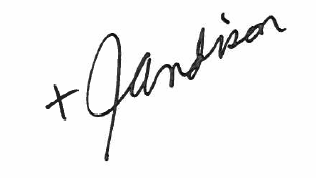 + Jandison